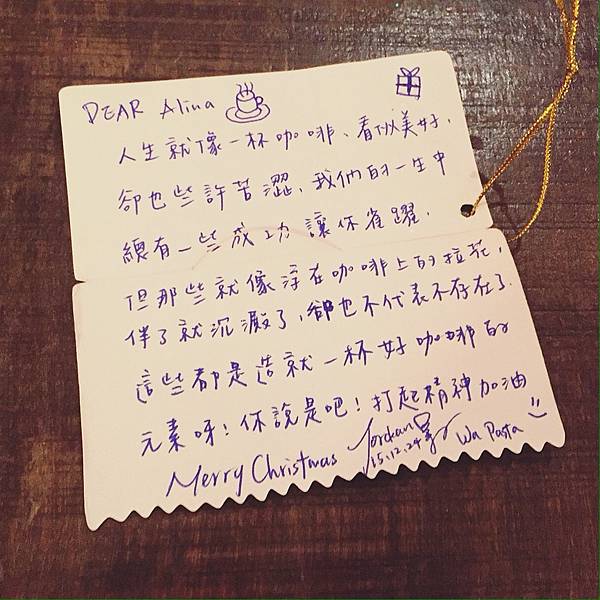 DEAR Alina
人生就像一杯咖啡、看似美好,
卻也些許苦澀,我們的一生中
總有一些成功讓你雀躍.
但那些就像浮在咖啡上的拉花,
伴了就沉澱了,卻也不代表不存在了.
這些都是造就一杯好咖啡的
元素呀!你說是吧!打起精神加油
Merry Christmas Jordan Wa Pasta
15.12.24